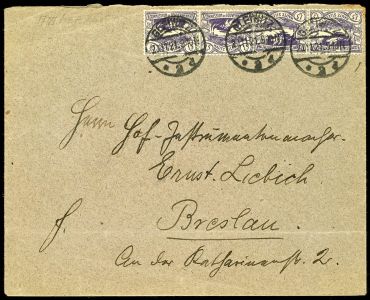 Herrn Hof-Instrumentenmacher
Ernst Liebich
Breslau
An der Katharinenstr. 2.